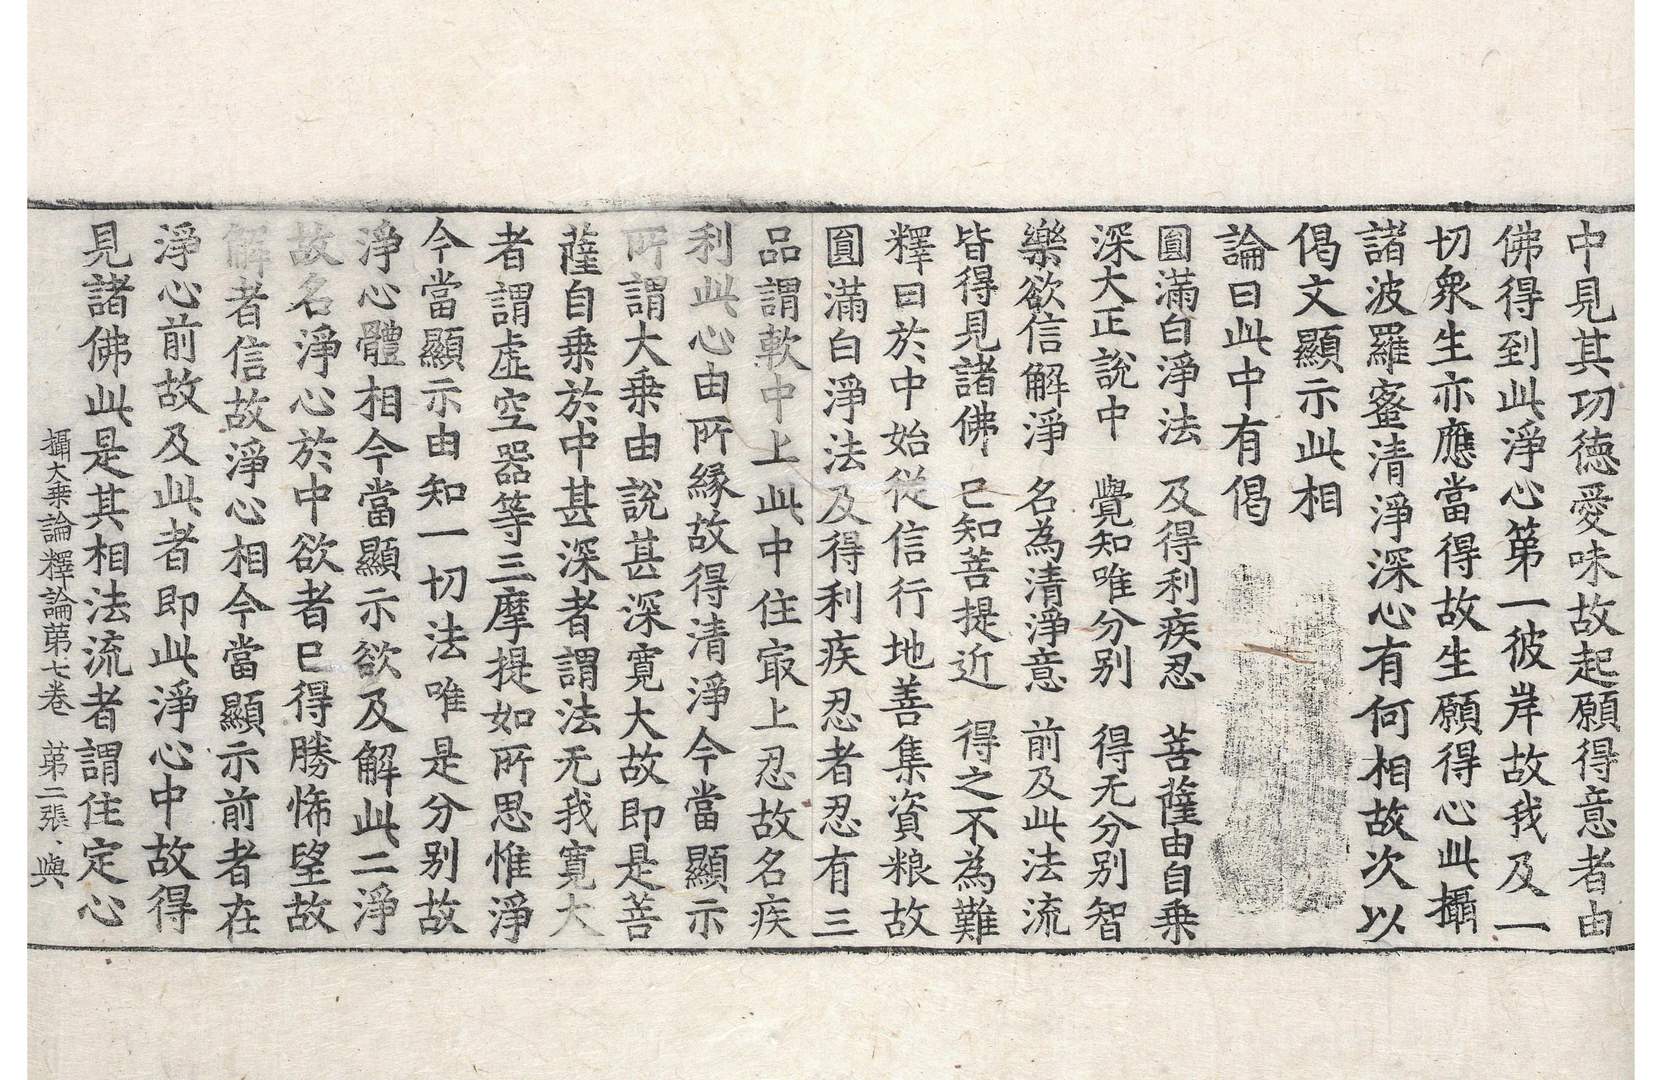 中見其功德愛味故起願得意者由
佛得到此淨心第一彼岸故我及一
切衆生亦應當得故生願得心此攝
諸波羅蜜清淨深心有何相故次以
偈文顯示此相
論曰此中有偈
圓滿白淨法　及得利疾忍　菩薩由自乗
深大正說中　覺知唯分别　得无分别智
樂欲信解淨　名為清淨意　前及此法流
皆得見諸佛　已知菩提近　得之不為難
釋曰於中始從信行地善集資粮故
圓滿白淨法及得利疾忍者忍有三
品謂軟中上此中住㝡上忍故名疾
利此心由所緣故得清淨今當顯示
所謂大乗由說甚深寬大故即是菩
薩自乗於中甚深者謂法无我寬大
者謂虛空器等三摩提如所思惟淨
今當顯示由知一切法唯是分别故
淨心體相今當顯示欲及解此二淨
故名淨心於中欲者已得勝悕望故
解者信故淨心相今當顯示前者在
淨心前故及此者即此淨心中故得
見諸佛此是其相法流者謂住定心
攝大乗論釋論第七卷　第二張　與